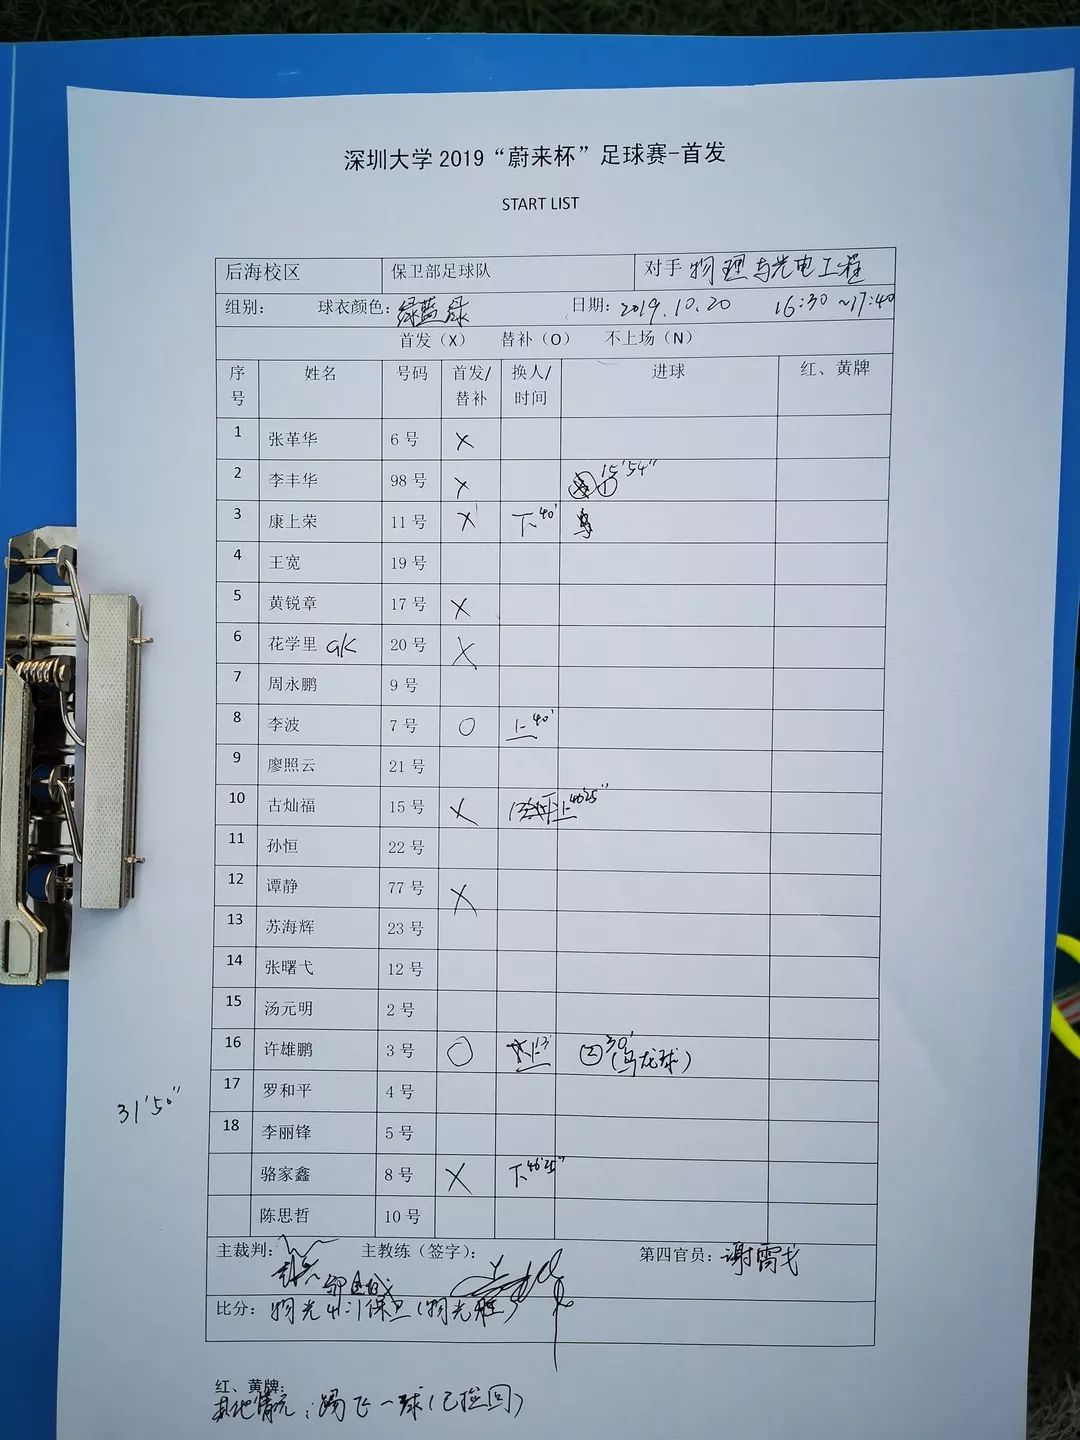 深圳大学 2019“蔚来杯”足球赛-首发
START LIST
后海校区 保卫部足球队 对手 物理与光电工程
组别： 球衣颜色：绿蓝绿 日期：2019.10.20 16:30~17:40
首发（X） 替补（O） 不上场（N）
序号 姓名 号码 首发/替补 换人/时间 进球 红、黄牌
1 张革华 6 号 X
2 李丰华 98 号 X ① 15'54"
3 康上荣 11 号 X 下 40'
4 王宽 19 号
5 黄锐章 17 号 X
6 花学里 GK 20 号 X
7 周永鹏 9 号
8 李波 7 号 O 上 40'
9 廖照云 21 号
10 古灿福 15 号 X 上 46'25"
11 孙恒 22 号
12 谭静 77 号 X
13 苏海辉 23 号
14 张曙弋 12 号
15 汤元明 2 号
16 许雄鹏 3 号 O 上 13' ② 30'(乌龙球)
17 罗和平 4 号
31'50"
18 李丽锋 5 号
骆家鑫 8 号 X 下 46'25"
陈思哲 10 号
主裁判： 主教练（签字）： 第四官员：谢霄弋
比分：物光 4:1 保卫(物光胜)
红、黄牌：
其他情况：踢飞一球(已捡回)